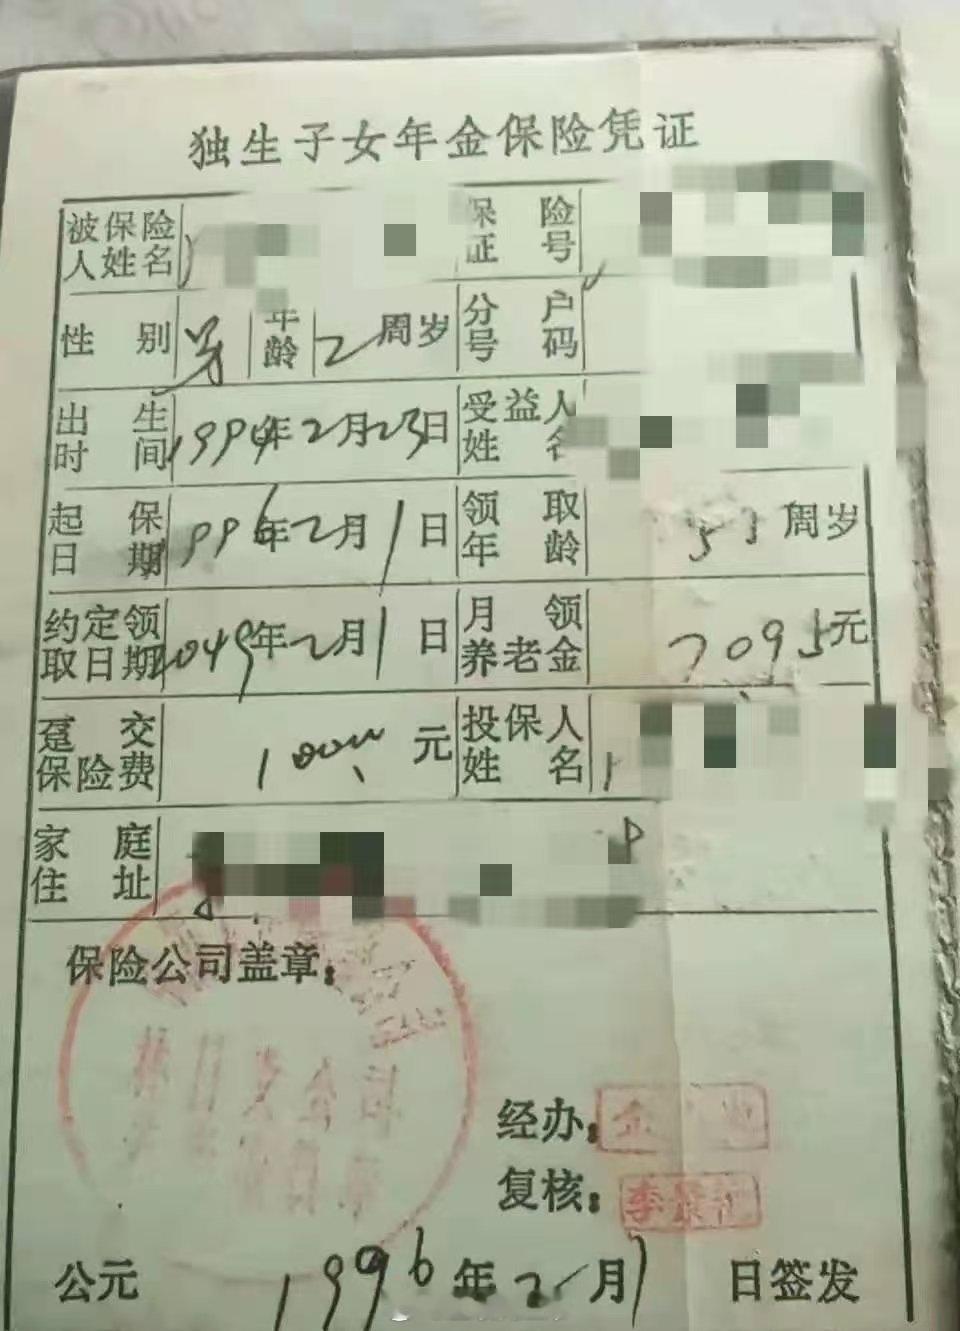 独生子女年金保险凭证
被保险人姓名 保险证号
性别 男 年龄 2周岁 分户号码
出生时间 1994年2月23日 受益人姓名
起保日期 1996年2月1日 领取年龄 周岁
约定领取日期 2049年2月1日 月领养老金 元
趸交保险费 元 投保人姓名
家庭住址
保险公司盖章：
经办：
复核：李景
公元 1996年2月1日签发